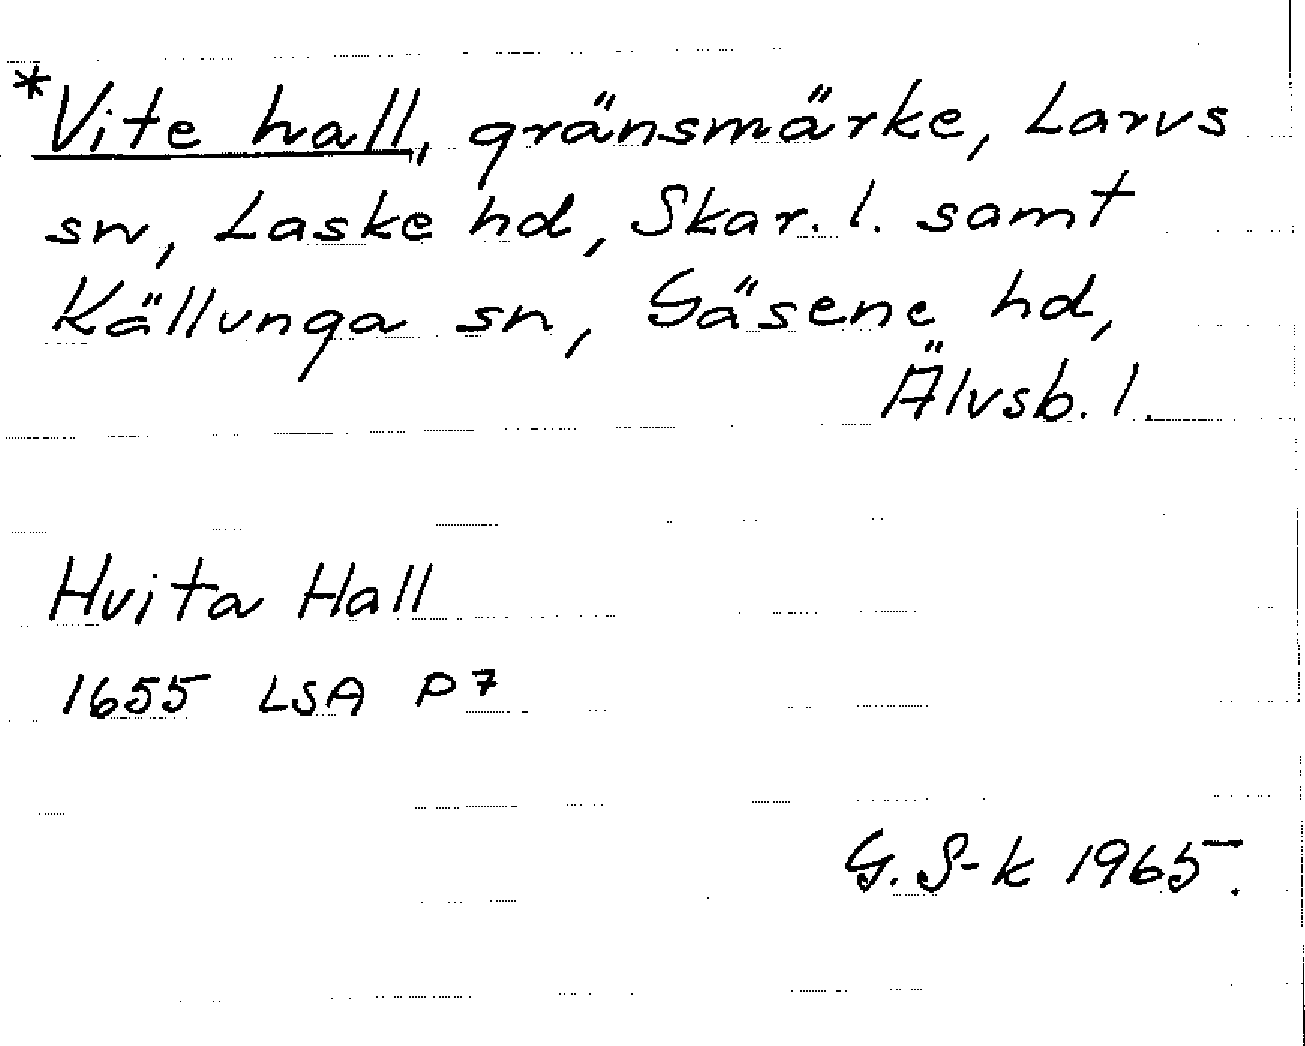 *Vite hall, gränsmärke, Larvs
sn, Laske hd, Skar. l. samt
Källunga sn, Gäsene hd,
Älvsb. l.
Hvita Hall
1655 LSA P7
G. S-k 1965.